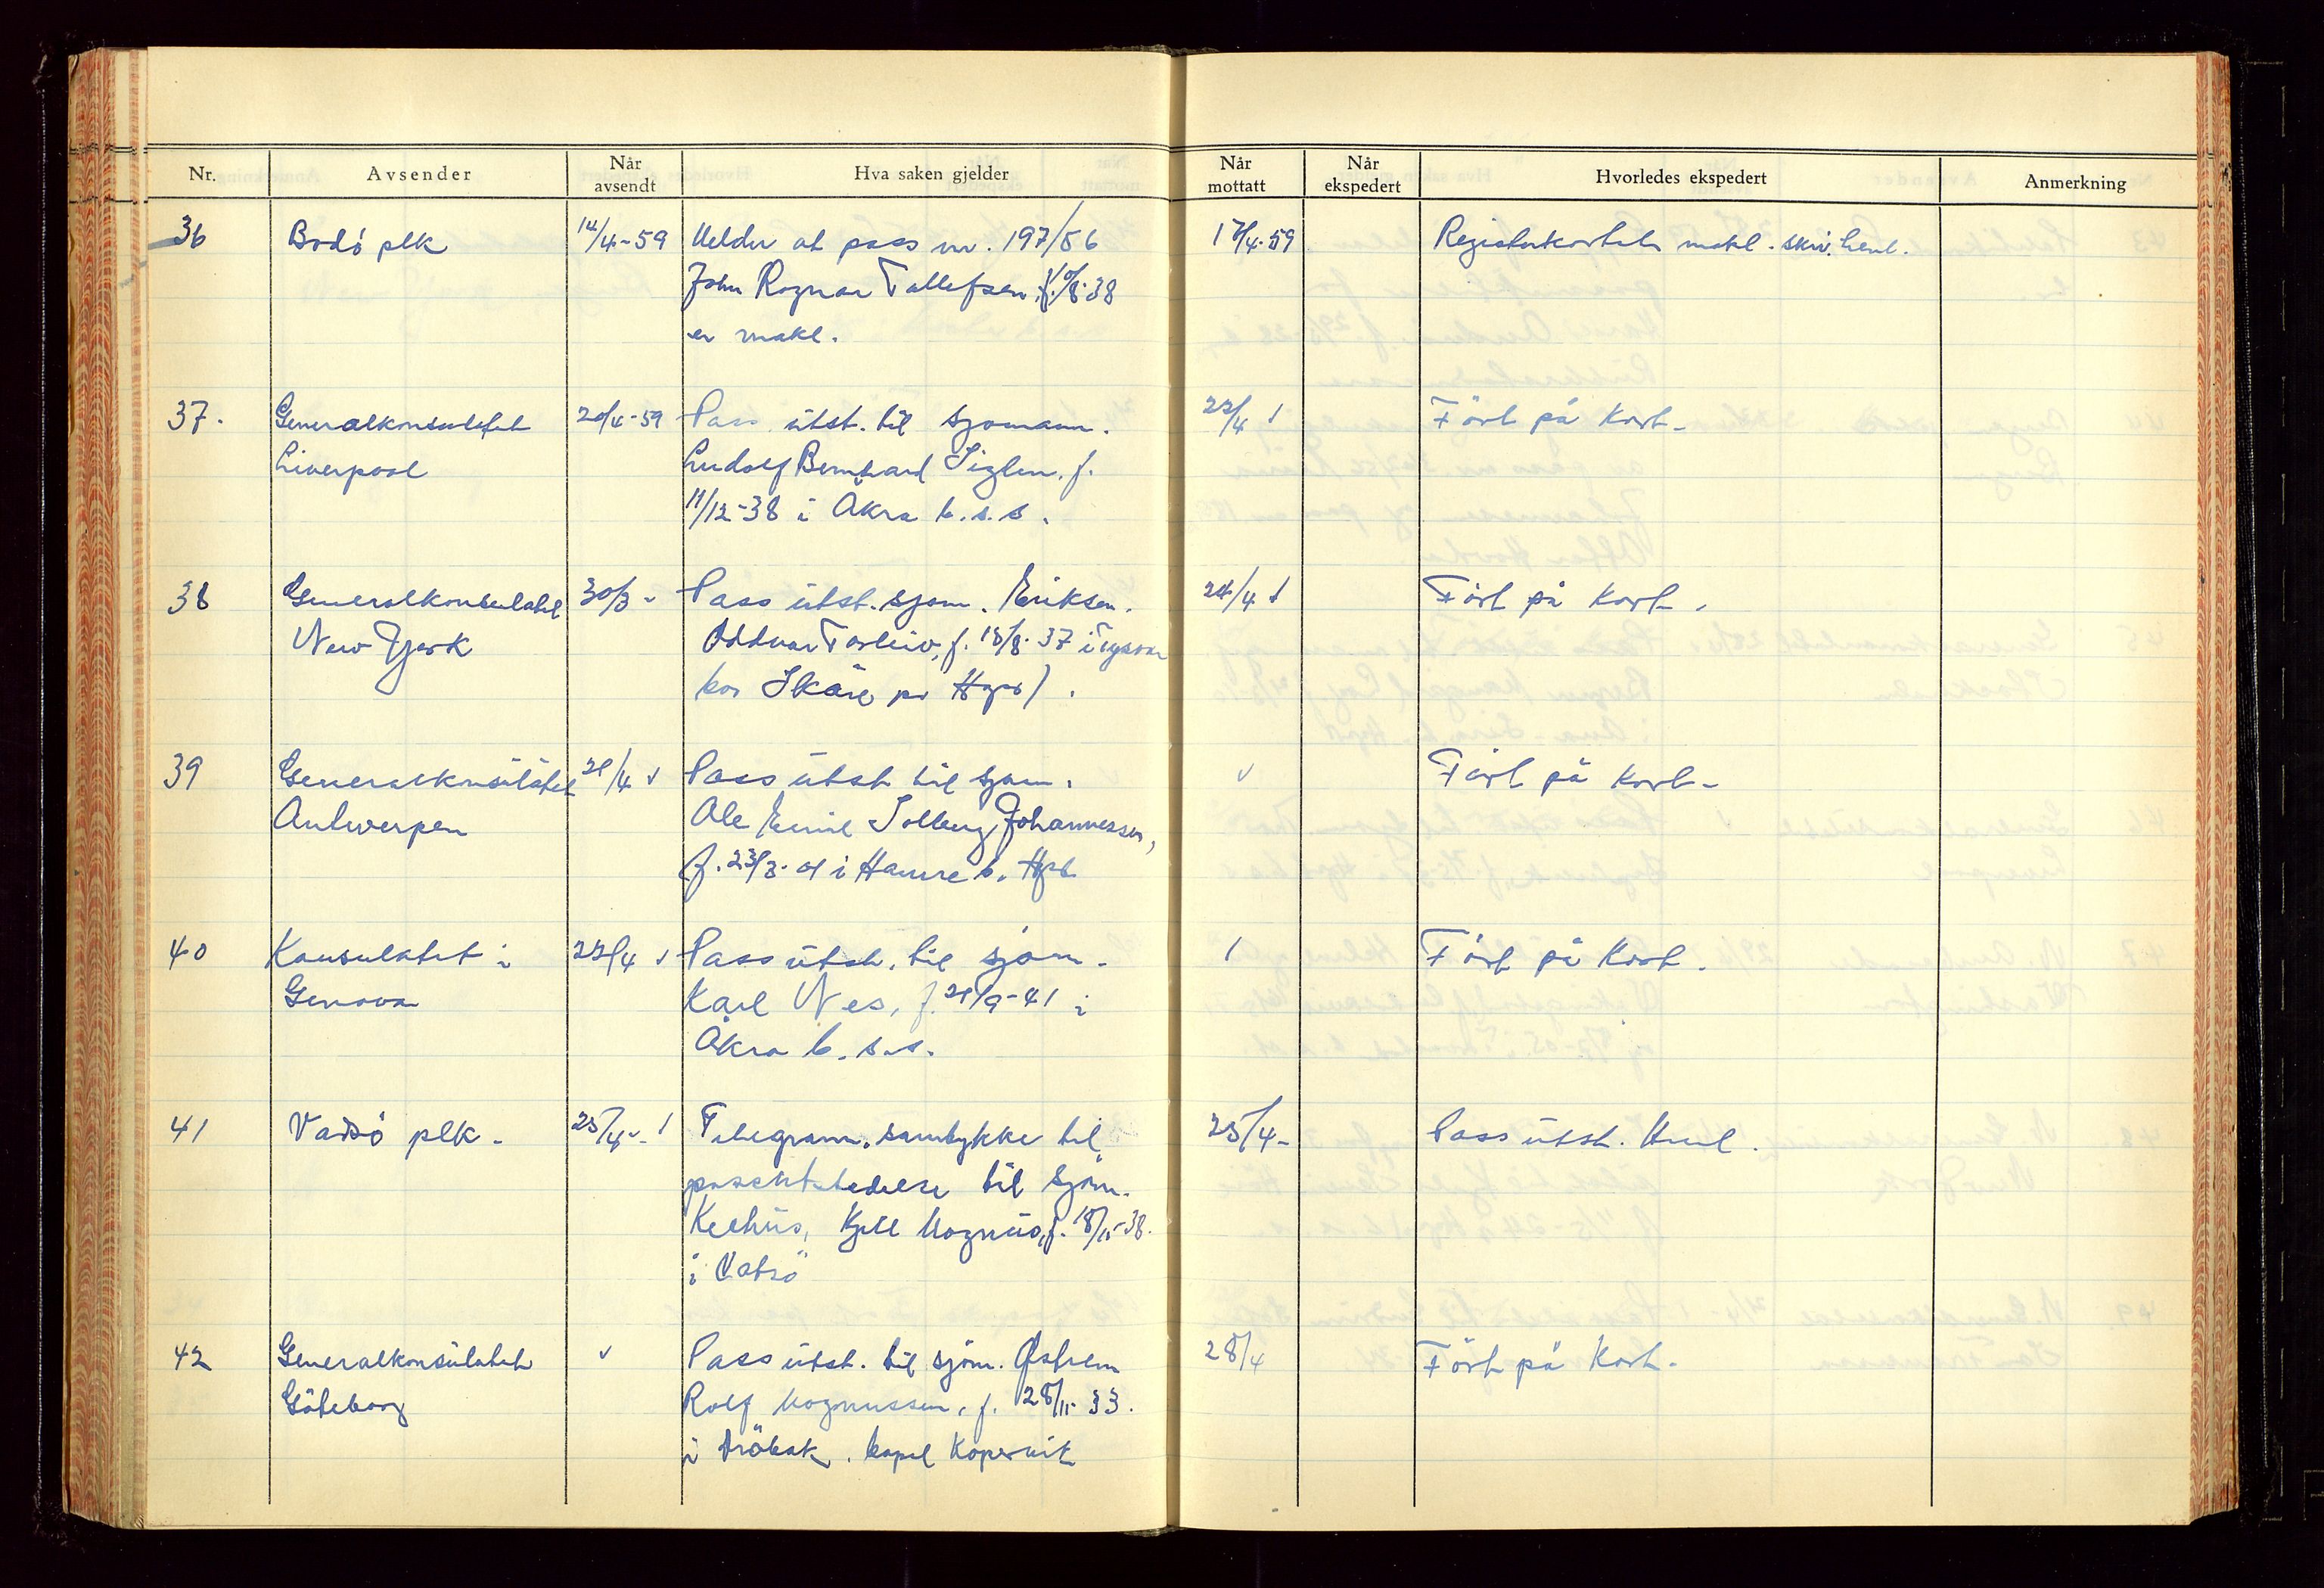 Nr.
Avsender
Når avsendt
Hva saken gjelder
Når mottatt
Når ekspedert
Hvorledes ekspedert
Anmerkning
36 Bodö plk 14/4-59 Melder at pass nr. 197/56 17/4-59 Registerkortet makl. skriv. henl.
John Ragnar Tollefsen, f. 10/8-38
er makl.
37. Generalkonsulatet 20/4-59 Pass utst. til sjømann. 22/4 Fört på kort.
Liverpool Ludolf Bernhard f.
11/12-38 i Åkra b.s.s.
38 Generalkonsulatet 30/3 - Pass utst. sjøm. Eriksen. 24/4 Fört på kort.
New York Oddvar Torleiv, f. 18/8-37 i Tysvær
bor Skåre pr Hgsd).
39 Generalkonsulatet 21/4 Pass utst til sjøm. Fört på kort.
Antwerpen Ole Emil Solberg Johannessen,
f. 23/3-01 i Hamre b. Hgsd
40 Konsulatet i 22/4 Pass utst. til sjøm. Fört på kort.
Genova Karl Nes, f. 21/9-41 i
Åkra b.s.s.
41 Vadsö plk. 25/4 - Telegram. samtykke til 25/4- Pass utst. Henl.
passutstedelse til sjøm.
Kjell Magnus, f. 18/11-38.
i Vatsö
42 Generalkonsulatet Pass utst. til sjøm. Østrem 28/4 Fört på kort.
Göteborg Rolf Magnussen, f. 28/11-33.
i Dröbak. bopel Kopervik